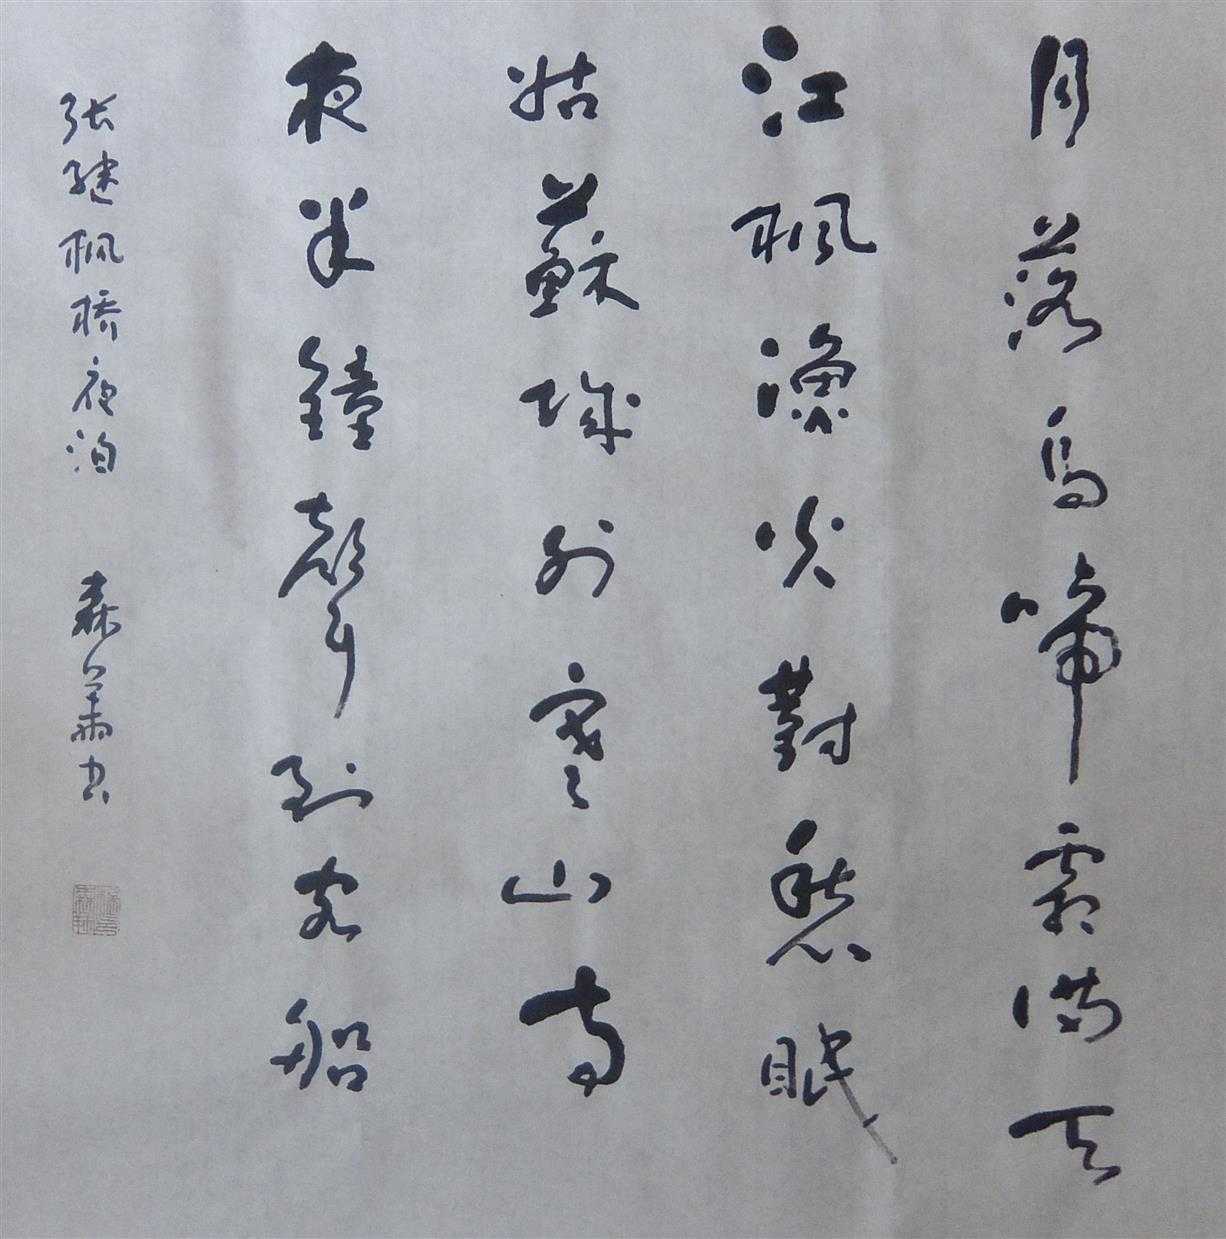 月落烏啼霜满天
江枫漁火對愁眠
姑蘇城外寒山寺
夜半鐘聲到客船
张继枫橋夜泊
森華书